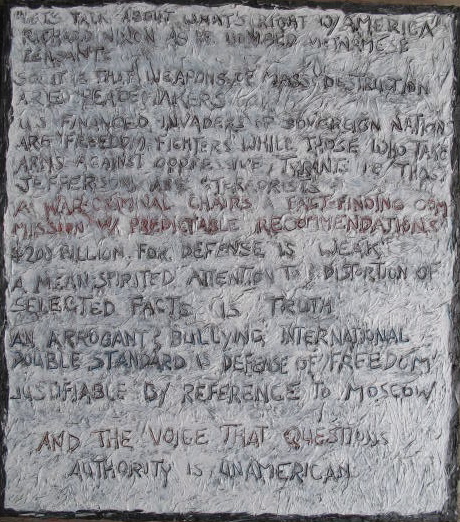 "LET'S TALK ABOUT WHAT'S RIGHT W/AMERICA"
RICHARD NIXON AS HE BOMBED VIETNAMESE
PEASANTS
SO IT IS THAT WEAPONS OF MASS DESTRUCTION
ARE "PEACEMAKERS"
U.S FINANCED INVADERS OF SOVEREIGN NATION
ARE "FREEDOM FIGHTERS WHILE THOSE WHO TAKE
ARMS AGAINST OPPRESSIVE TYRANTS
JEFFERSON ARE "TERRORISTS"
A WAR CRIMINAL CHAIRS A FACT-FINDING COM
MISSION W/ PREDICTABLE RECOMMENDATIONS
BILLION FOR DEFENSE IS "WEAK"
A MEAN-SPIRITED ATTENTION TO DISTORTION OF
SELECTED FACTS IS TRUTH
AN ARROGANT & BULLYING INTERNATIONAL
DOUBLE STANDARD IS DEFENSE OF "FREEDOM"
JUSTIFIABLE BY REFERENCE TO MOSCOW
AND THE VOICE THAT QUESTIONS
AUTHORITY IS UNAMERICAN